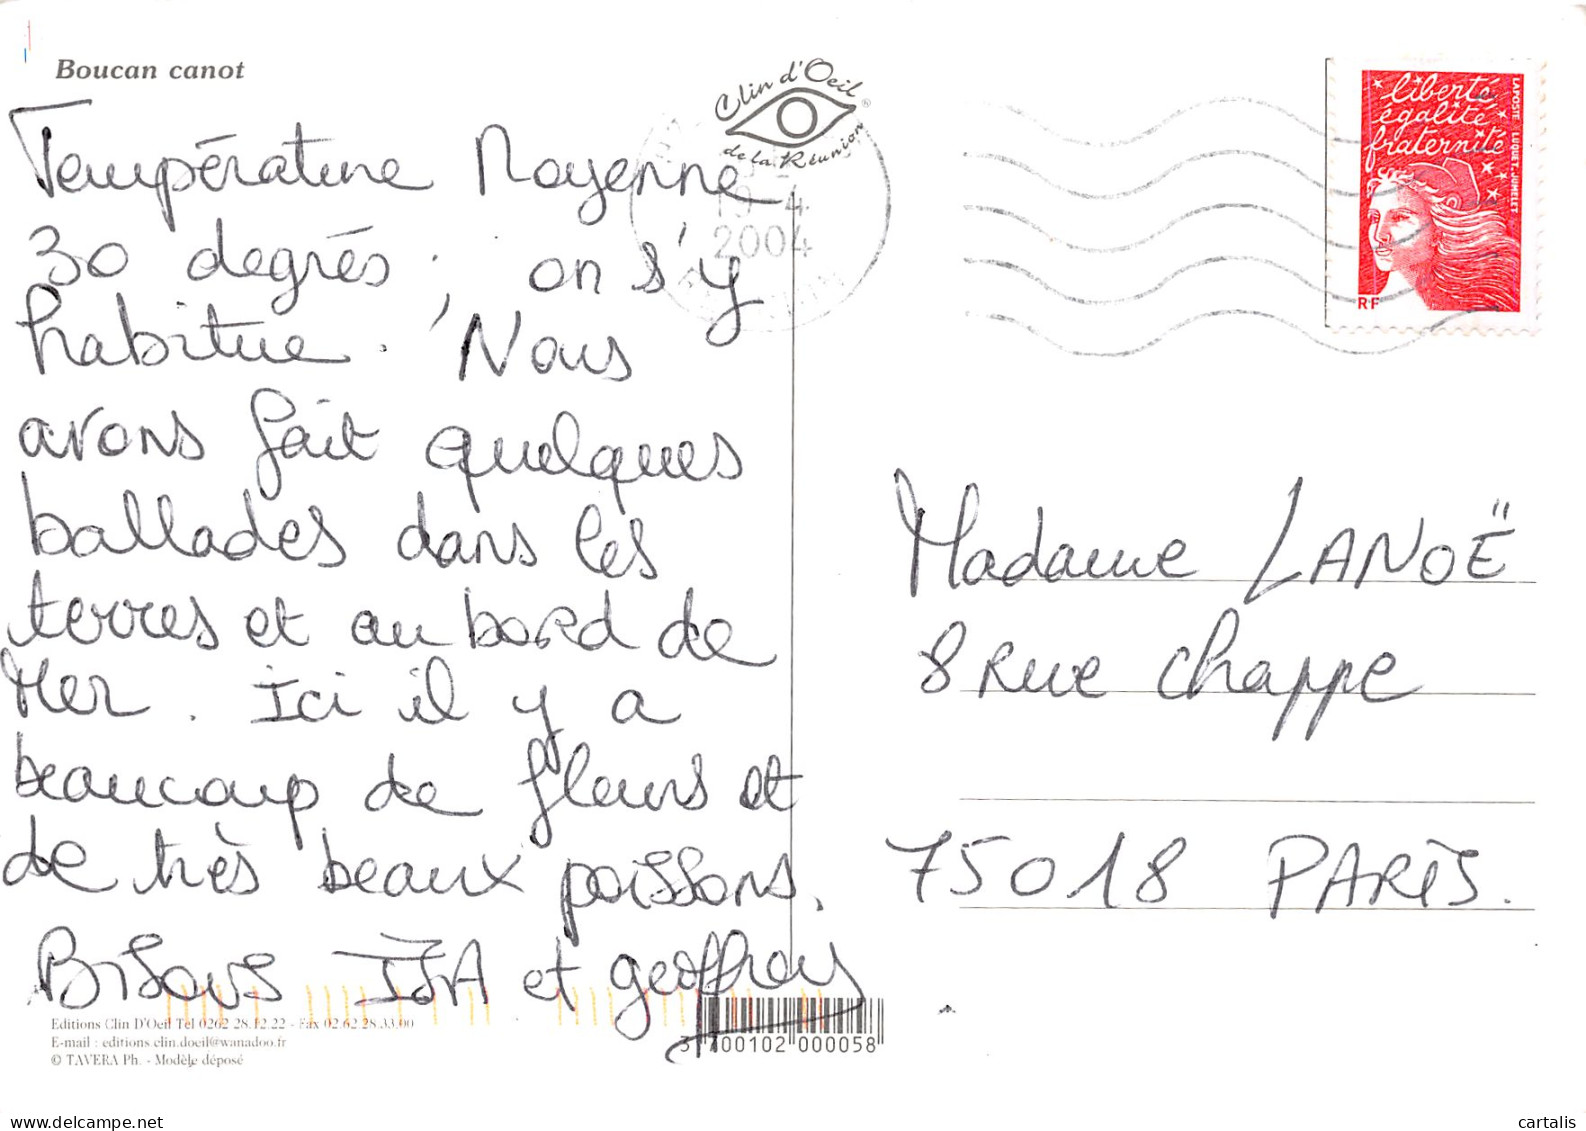 Boucan canot
Clin d'Oeil
de la Réunion
®
Température Moyenne
30 degrés ; on s'y
habitue. Nous
avons fait quelques
ballades dans les
terres et au bord de
Mer. Ici il y a
beaucoup de fleurs et
de très beaux poissons.
Bisous ISA et geoffroy
Editions Clin D'Oeil Tel 0262 28.12.22 - Fax 02.62.28.33.00
E-mail : editions.clin.doeil@wanadoo.fr
© TAVERA Ph. - Modèle déposé
3 700102 000058
19-4
2004
liberté
égalité
fraternité
LAPOSTE LUQUET-JUMELET
RF
Madame LANOË
8 Rue Chappe
75018 PARIS.
www.delcampe.net
cartalis